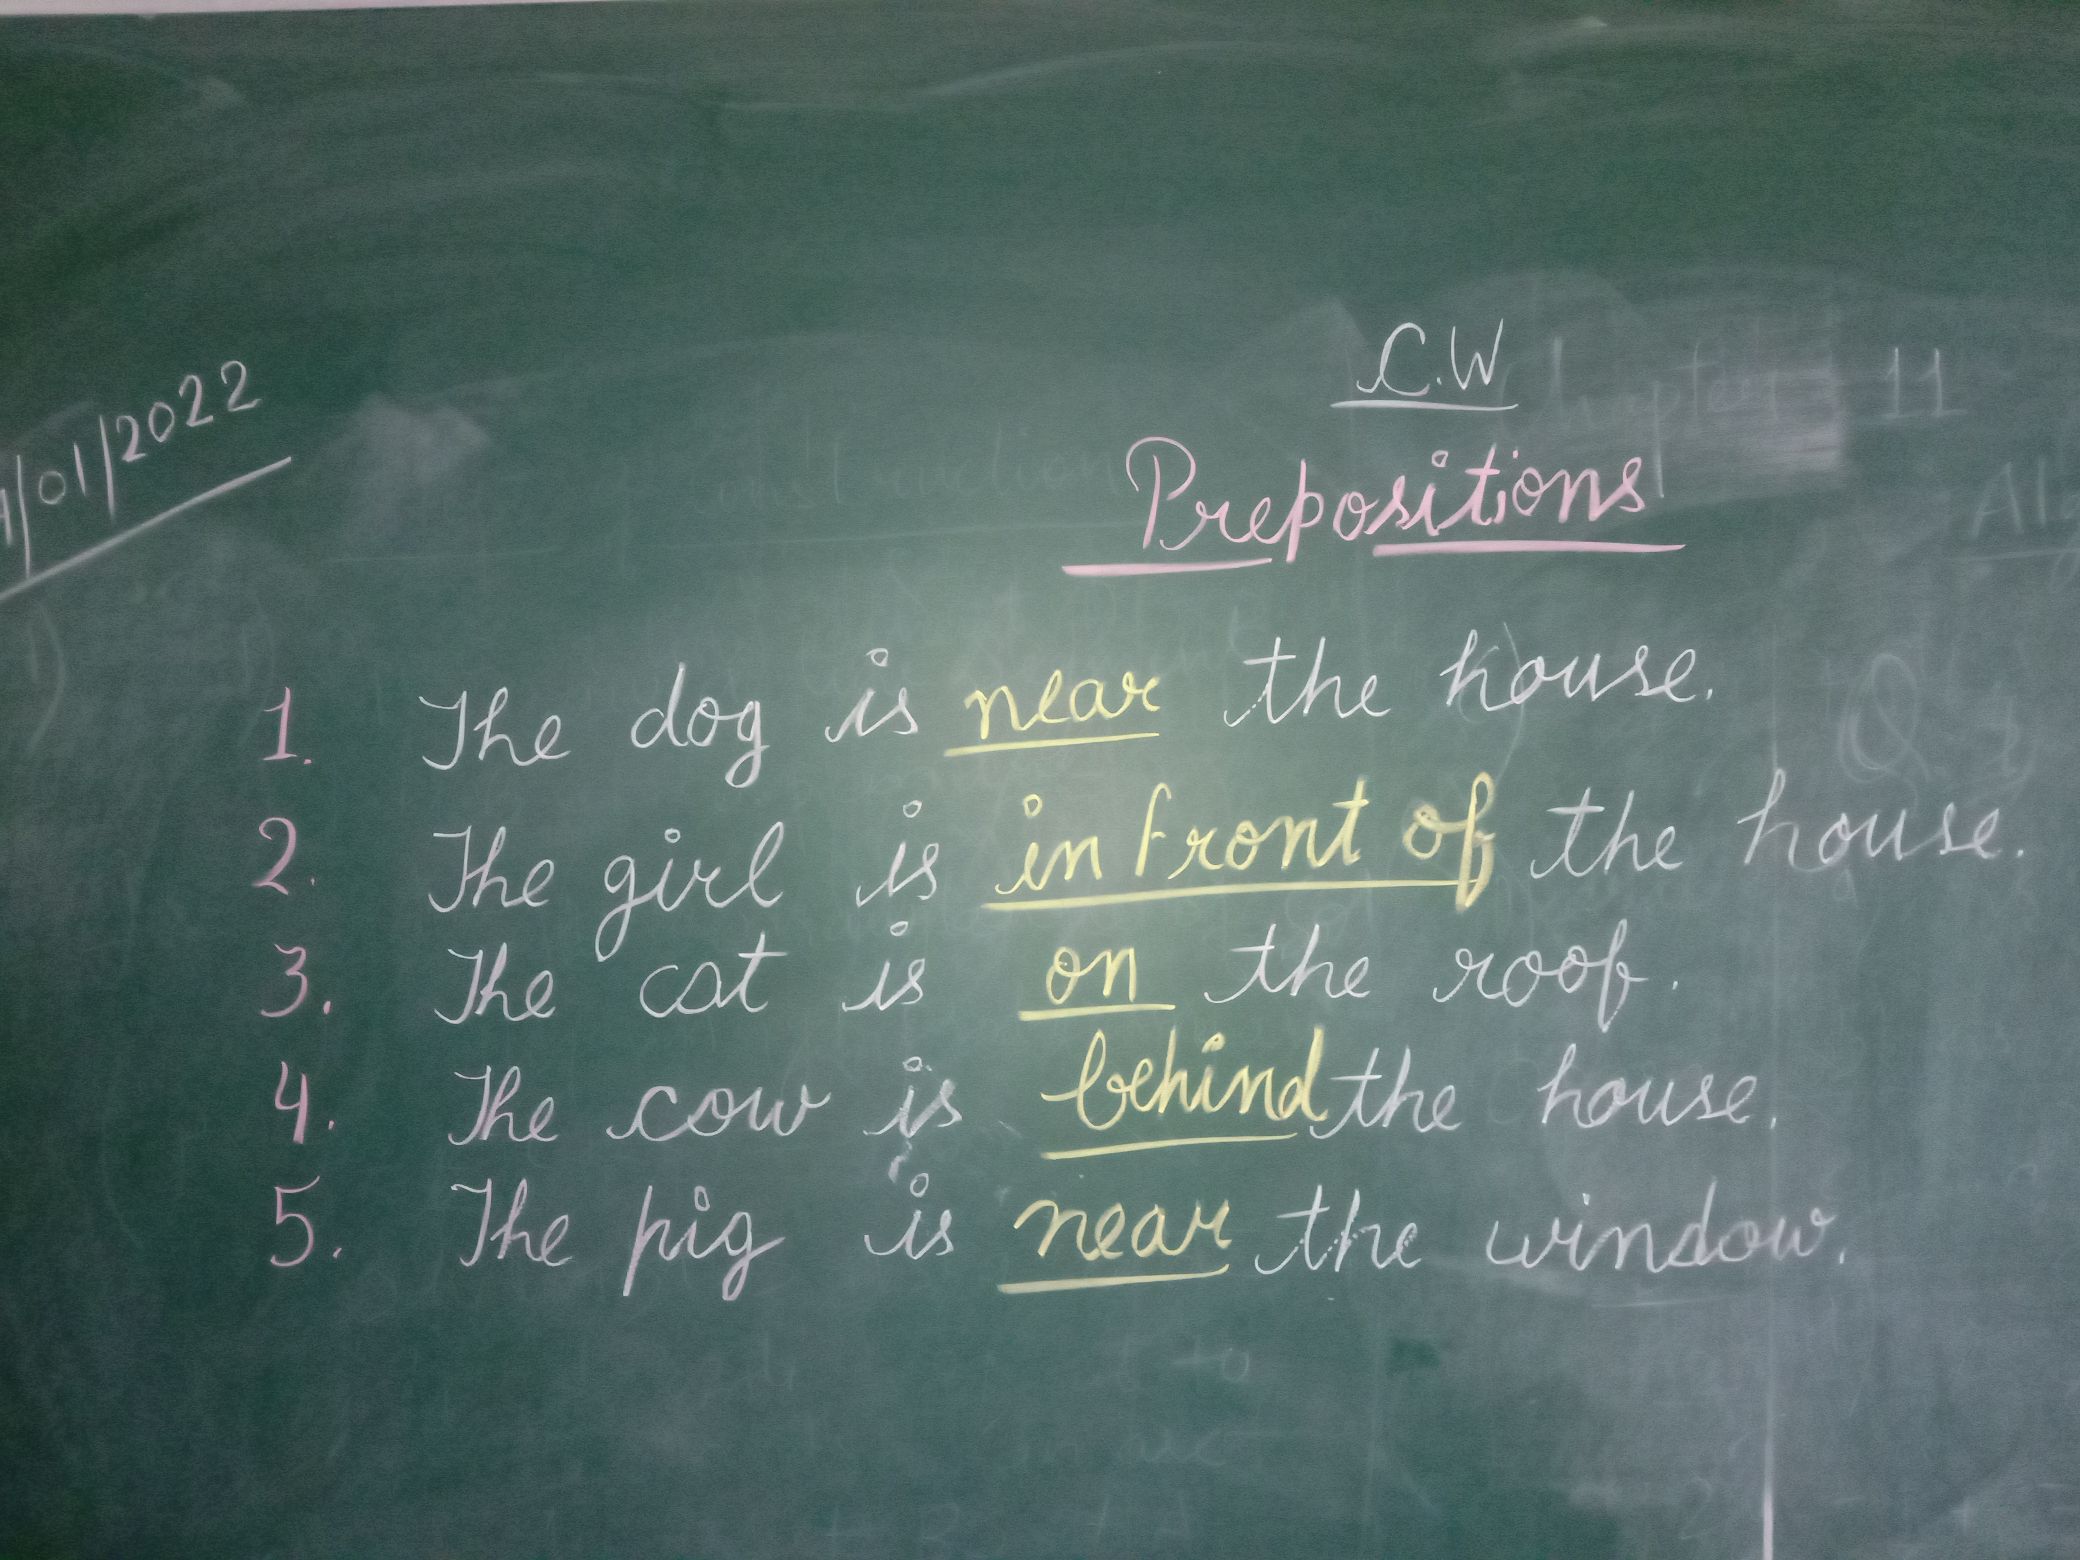 /01/2022
C.W
Chapter 11
Prepositions
1. The dog is near the house.
2. The girl is in front of the house.
3. The cat is on the roof.
4. The cow is behind the house.
5. The pig is near the window.